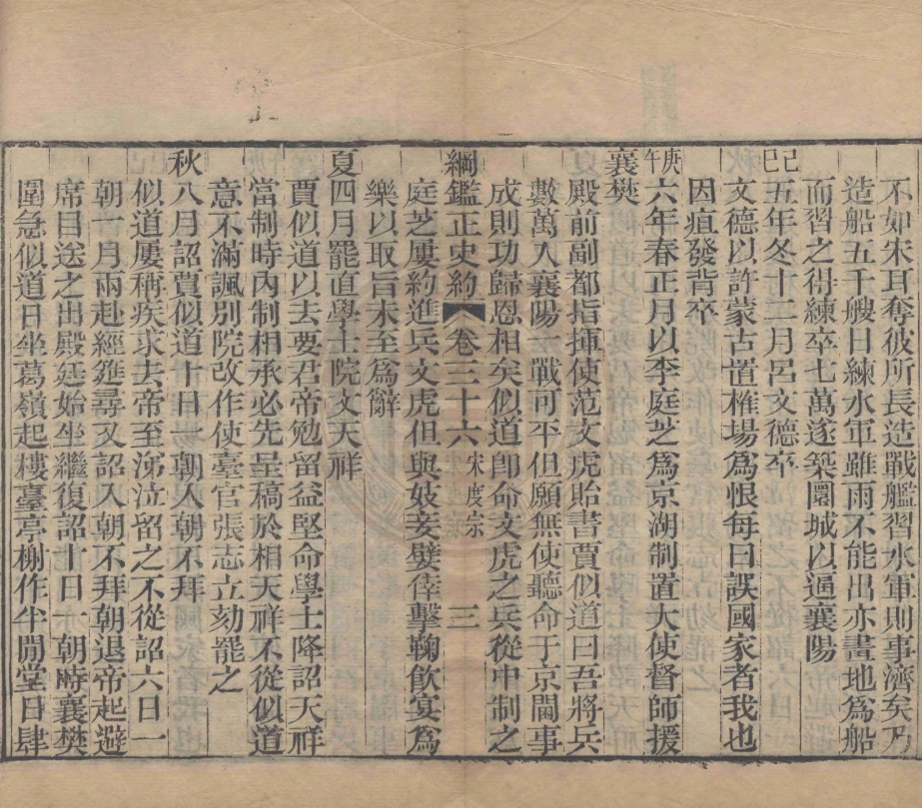 不如宋耳奪彼所長造戰艦習水軍則事濟矣乃
造船五千艘日練水軍雖雨不能出亦畫地爲船
而習之得練卒七萬遂築圜城以逼襄陽
己巳五年冬十二月呂文德卒
文德以許蒙古置榷場爲恨每曰誤國家者我也
因疽發背卒
庚午六年春正月以李庭芝爲京湖制置大使督師援
襄樊
殿前副都指揮使范文虎貽書賈似道曰吾將兵
數萬入襄陽一戰可平但願無使聽命于京閫事
成則功歸恩相矣似道卽命文虎之兵從中制之
綱鑑正史約 卷三十六 宋度宗 三
庭芝屢約進兵文虎但與妓妾嬖倖擊鞠飲宴爲
樂以取旨未至爲辭
夏四月罷直學士院文天祥
賈似道以去要君帝勉留益堅命學士降詔天祥
當制時內制相承必先呈稿於相天祥不從似道
意不滿諷別院改作使臺官張志立劾罷之
秋八月詔賈似道十日一朝入朝不拜
似道屢稱疾求去帝至涕泣留之不從詔六日一
朝一月兩赴經筵尋又詔入朝不拜朝退帝起避
席目送之出殿廷始坐繼復詔十日一朝時襄樊
圍急似道日坐葛嶺起樓臺亭榭作半閒堂日肆